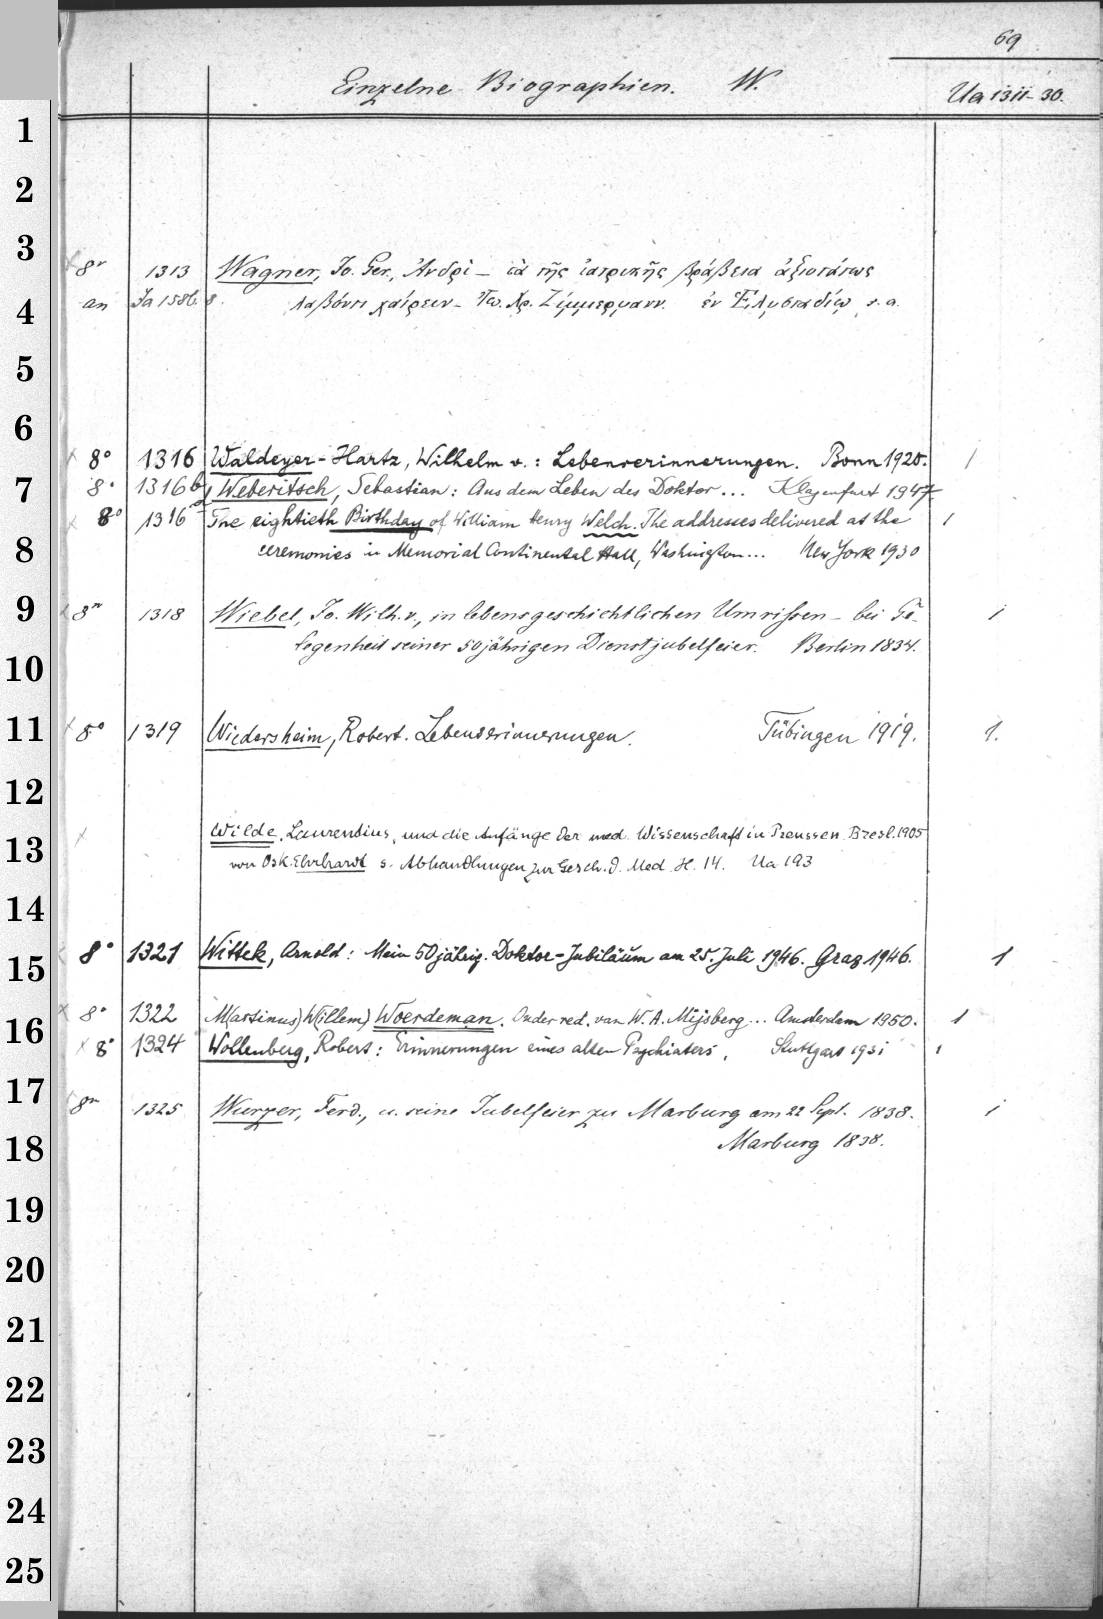 69
Einzelne Biographien. W.
Ua 1311-30.
1
2
3
8° 1313 Wagner, Jo. Ger., Ἀνδρὶ – τὰ τῆς ἰατρικῆς βράβεια ἀξιοτάτως
an Ja 1586 8. λαβόντι χαίρειν – Ζίμμερμανν. ἐν s. a.
4
5
6
8° 1316 Waldeyer-Hartz, Wilhelm v.: Lebenserinnerungen. Bonn 1920. 1
7
8° 1316 b Weberitsch, Sebastian: Aus dem Leben des Doktor... Klagenfurt 1947
8° 1316 The eightieth Birthday of William Henry Welch. The addresses delivered at the 1
8
ceremonies in Memorial Continental Hall, Washington... New York 1930
9
8° 1318 Wiebel, Jo. Wilh. v., in lebensgeschichtlichen Umrissen – bei Ge- 1
10
legenheit seiner 50jährigen Dienstjubelfeier. Berlin 1834.
11
8° 1319 Wiedersheim, Robert. Lebenserinnerungen. Tübingen 1919. 1.
12
13
Wilde, Laurentius, und die Anfänge der med. Wissenschaft in Preussen. Bresl. 1905
von Osk. Ehrhardt s. Abhandlungen zur Gesch. d. Med. H. 14. Ua 193
14
15
8° 1321 Wittek, Arnold: Mein 50jährig. Doktor-Jubiläum am 25. Juli 1946. Graz 1946. 1
16
8° 1322 M(artinus) W(illem) Woerdeman. Onder red. van W. A. Mijsberg... Amsterdam 1950. 1
8° 1324 Wollenberg, Robert: Erinnerungen eines alten Psychiaters. Stuttgart 1931 1
17
8° 1325 Wurzer, Ferd., u. seine Jubelfeier zu Marburg am 22 Sept. 1838. 1
18
Marburg 1838.
19
20
21
22
23
24
25